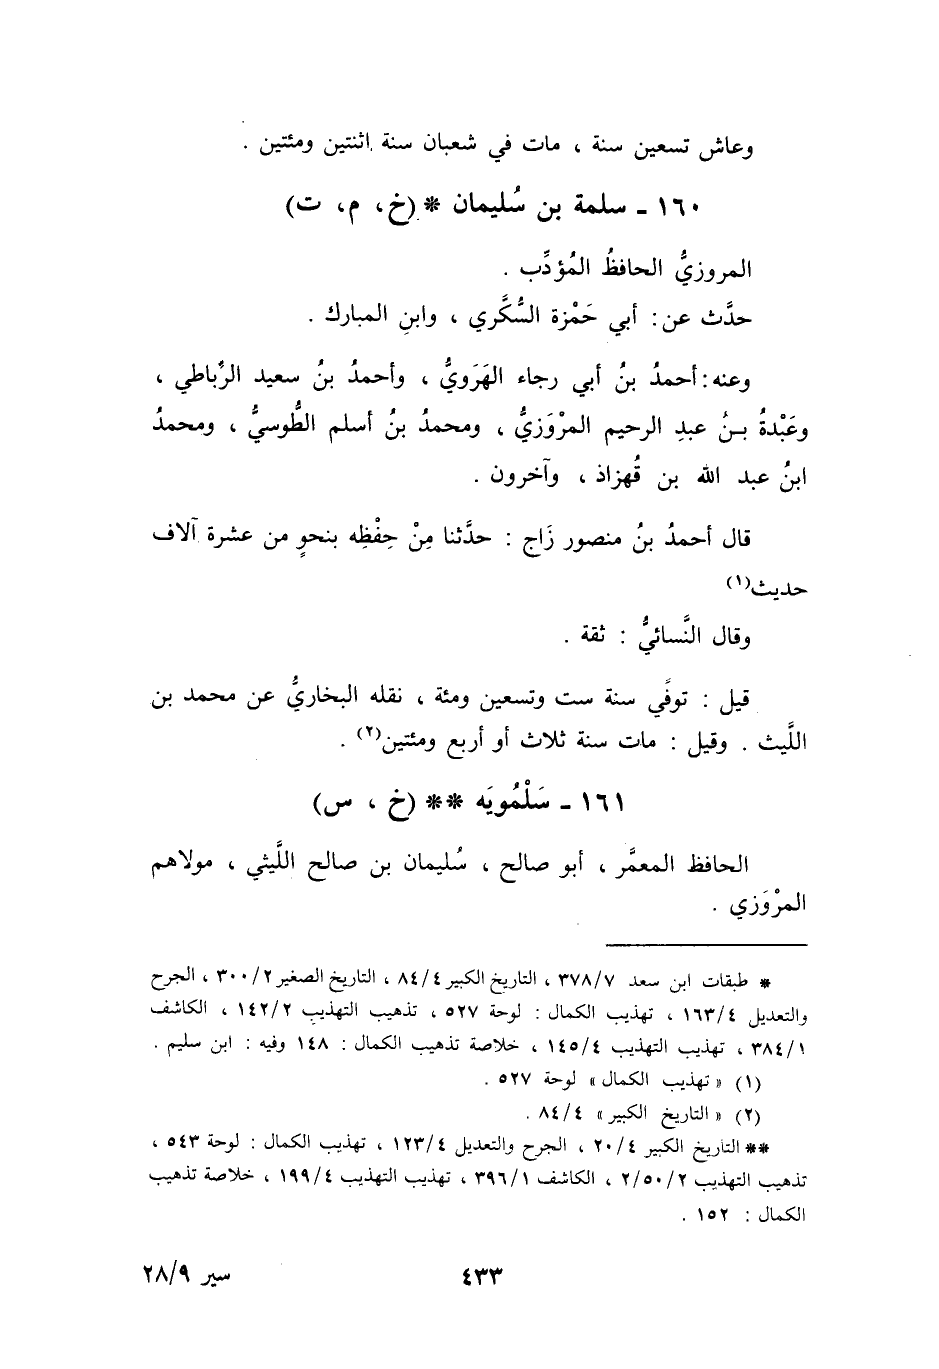 وعاش تسعين سنة ، مات في شعبان سنة اثنتين ومئتين .
١٦٠ ـ سلمة بن سُليمان * (خ، م، ت)
المروزيُّ الحافظُ المُؤدِّب .
حدَّث عن : أبي حَمْزة السُّكَّري ، وابنِ المبارك .
وعنه : أحمدُ بنُ أبي رجاء الهَرَويُّ ، وأحمدُ بنُ سعيد الرِّباطي ،
وعَبْدةُ بـنُ عبدِ الرحيم المرْوَزيُّ ، ومحمدُ بنُ أسلم الطُّوسيُّ ، ومحمدُ
ابنُ عبد الله بن قُهزاذ ، وآخرون .
قال أحمدُ بنُ منصور زَاج : حدَّثنا مِنْ حِفْظِه بنحوٍ من عشرة آلاف
حديث(١)
وقال النَّسائيُّ : ثقة .
قيل : توفَّي سنة ست وتسعين ومئة ، نقله البخاريُّ عن محمد بن
اللَّيث . وقيل : مات سنة ثلاث أو أربع ومئتين(٢) .
١٦١ ـ سَلْمُويَه ** (خ ، س)
الحافظ المعمَّر ، أبو صالح ، سُليمان بن صالح اللَّيثي ، مولاهم
المرْوَزي .
* طبقات ابن سعد ٣٧٨/٧ ، التاريخ الكبير ٨٤/٤ ، التاريخ الصغير ٣٠٠/٢ ، الجرح
والتعديل ١٦٣/٤ ، تهذيب الكمال : لوحة ٥٢٧ ، تذهيب التهذيب ١٤٢/٢ ، الكاشف
٣٨٤/١ ، تهذيب التهذيب ١٤٥/٤ ، خلاصة تذهيب الكمال : ١٤٨ وفيه : ابن سليم .
(١) « تهذيب الكمال » لوحة ٥٢٧ .
(٢) « التاريخ الكبير » ٨٤/٤ .
** التاريخ الكبير ٢٠/٤ ، الجرح والتعديل ١٢٣/٤ ، تهذيب الكمال : لوحة ٥٤٣ ،
تذهيب التهذيب ٢/٥٠/٢ ، الكاشف ٣٩٦/١ ، تهذيب التهذيب ١٩٩/٤ ، خلاصة تذهيب
الكمال : ١٥٢ .
٤٣٣
سير ٢٨/٩